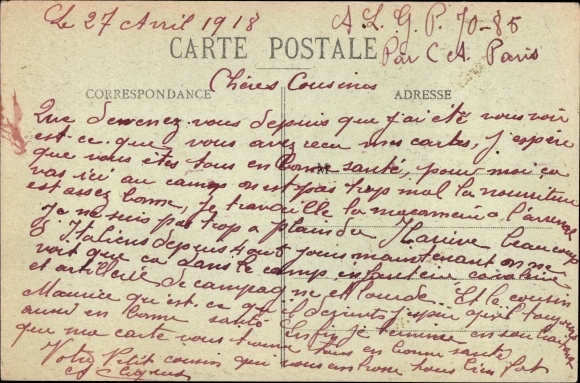 Le 27 Avril 1918
A. L. G. P. 70-85
CARTE POSTALE
Par C A. Paris
Chères Cousines
CORRESPONDANCE
ADRESSE
Que devenez vous depuis que j'ai été vous voir
est-ce que vous avez recu mes cartes, j'espère
que vous êtes tous en bonne santé, pour moi ça
M
vas ici au camp on est pas trop mal la nourriture
est assez bonne, Je travaille la maçonnerie a l'arsenal
Je ne suis pas trop a plaindre beaucoup
d'Italiens depuis 4 ou 5 jours maintenant on ne
voit que ça dans le camp cavalerie
et artillerie de campagne et lourde. Et le cousin
Maurice qu'est ce qu'il devient j'espère qu'il toujours
aussi en bonne santé Enfin je termine en souhaitant
que ma carte vous trouve tous en bonne santé
Votre Petit cousin qui vous embrasse tous bien fort